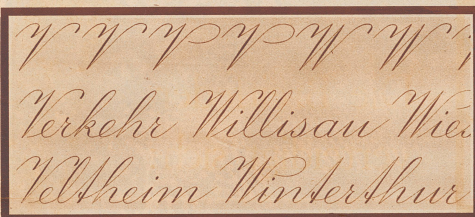 V V V V W W
Verkehr Willisau Wie
Veltheim Winterthur